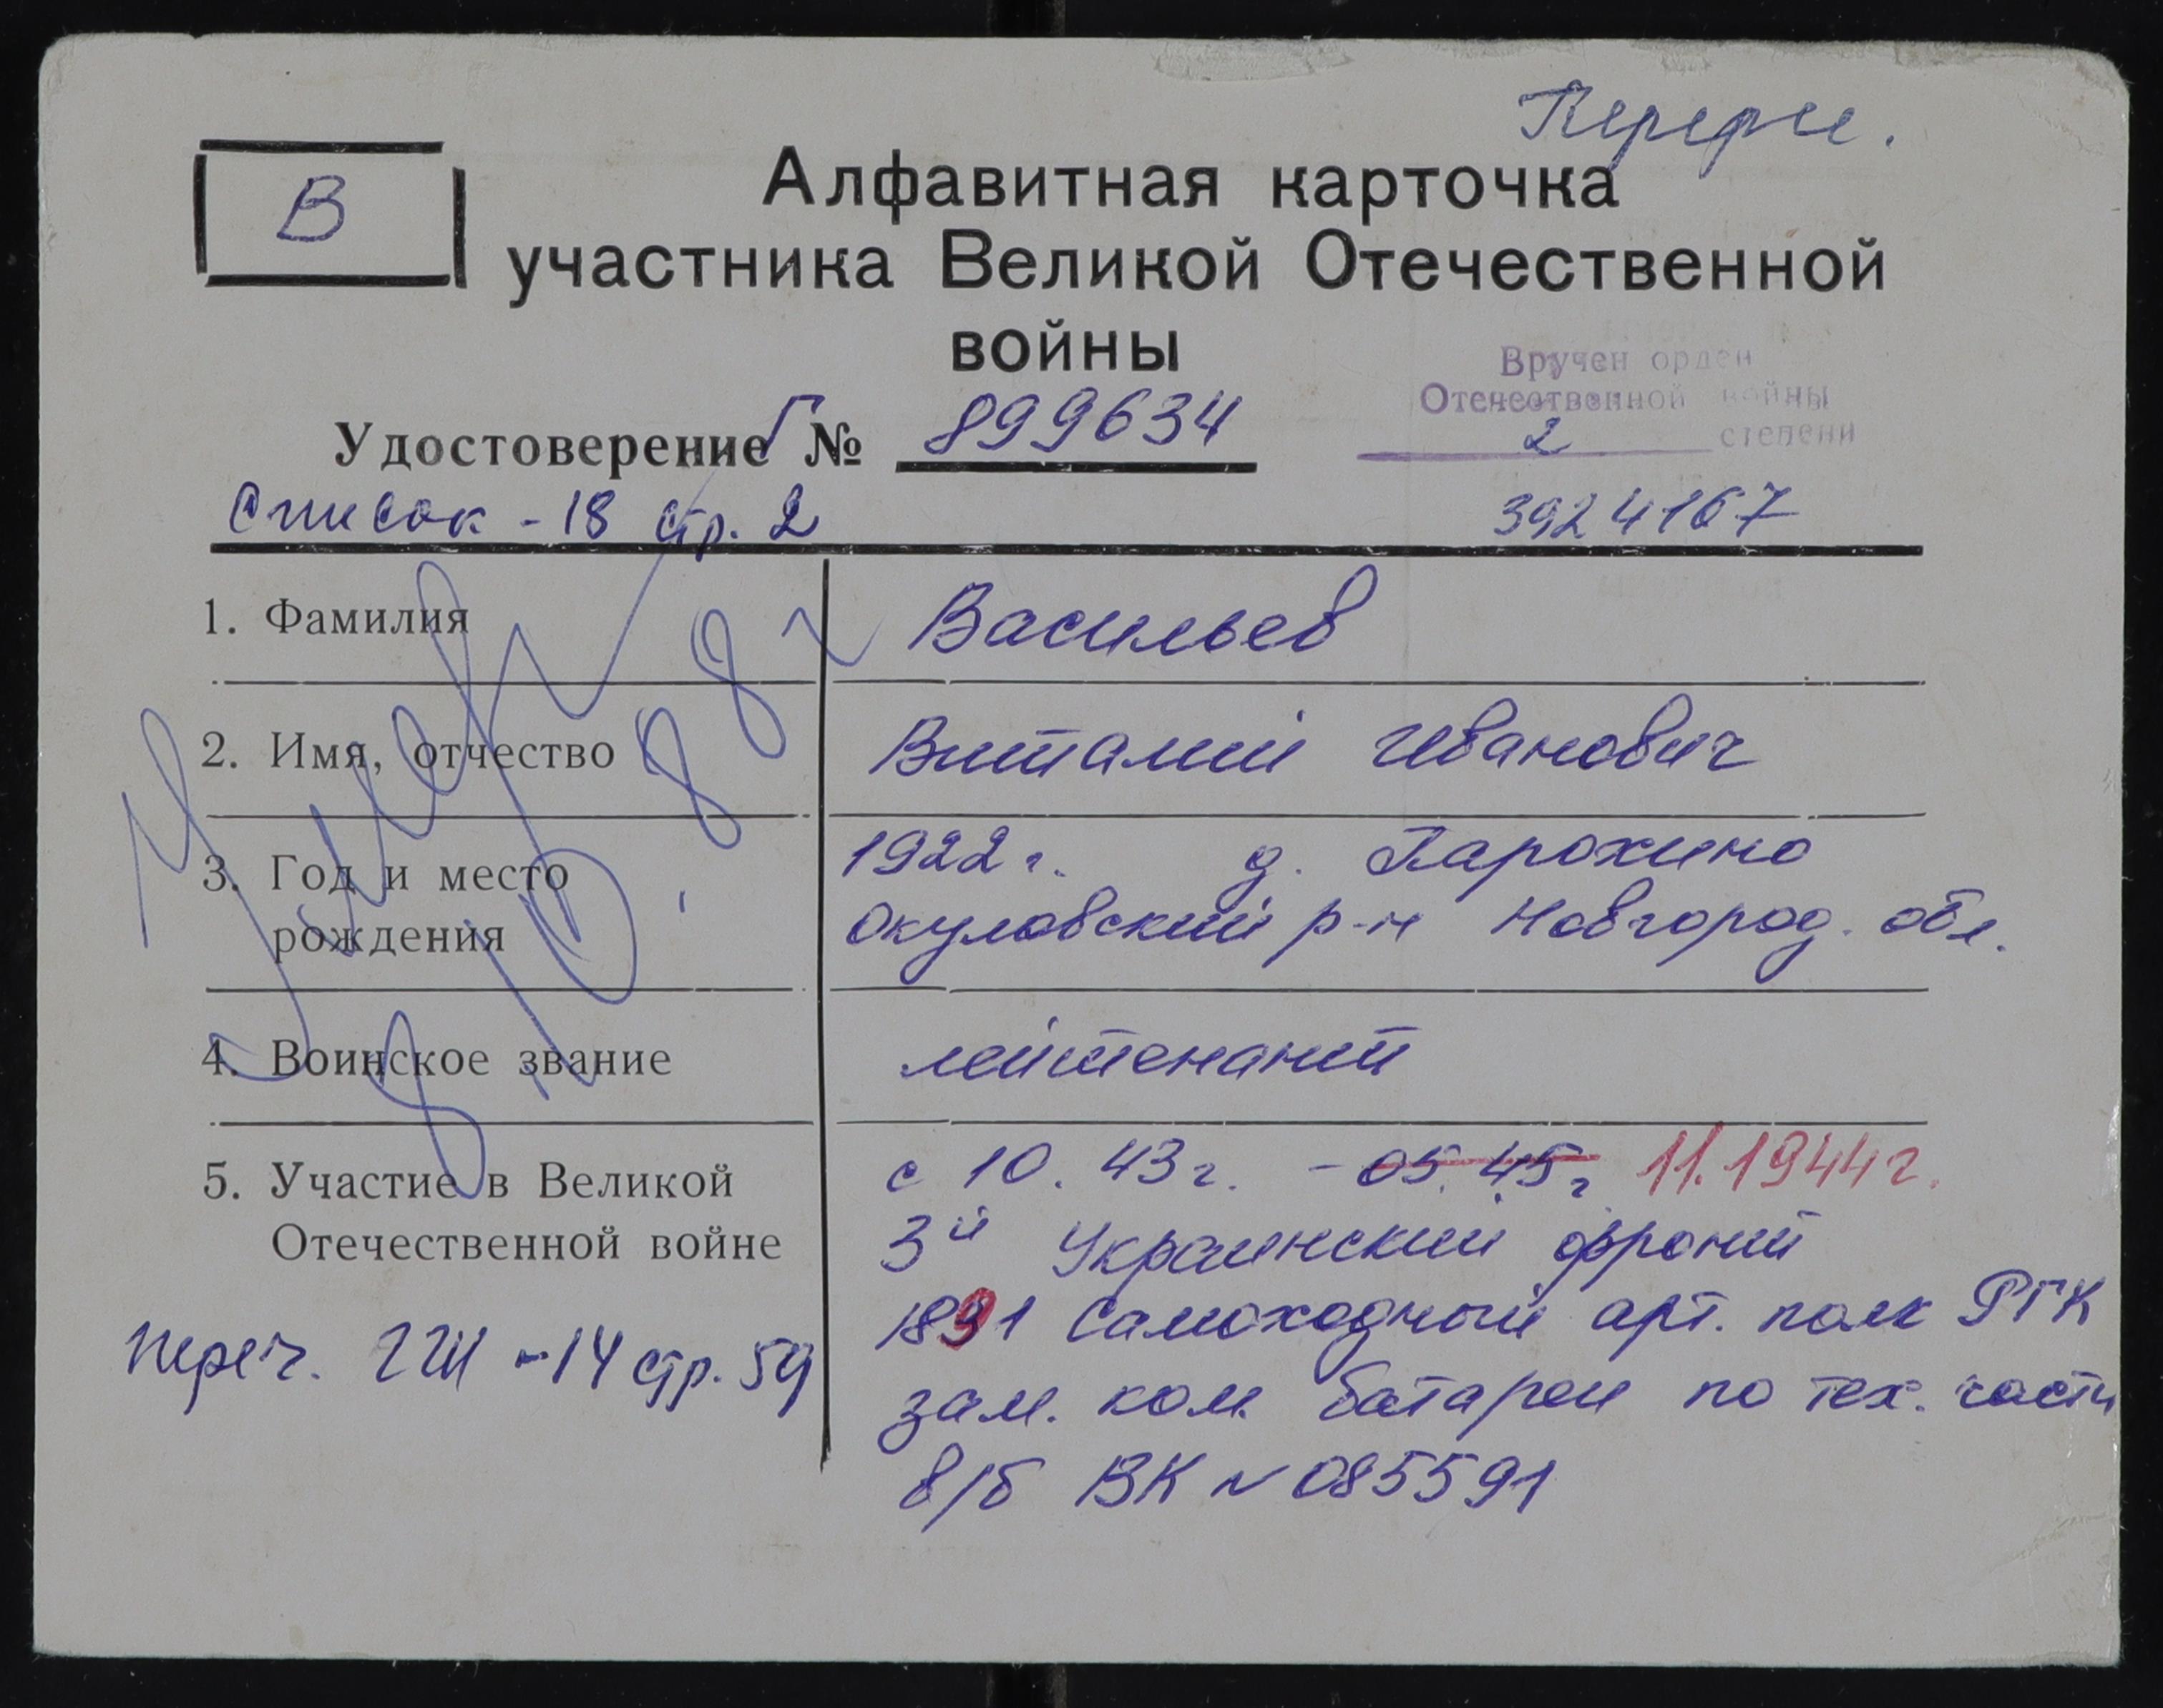 Перерег.
В
Алфавитная карточка
участника Великой Отечественной
войны
Вручен орден
Отечественной войны
2 степени
Удостоверение Г № 899634
Список - 18 стр. 2
3924167
1. Фамилия Васильев
2. Имя, отчество Виталий Иванович
3. Год и место рождения 1922 г. д. Парохино
Окуловский р-н Новгород. обл.
4. Воинское звание лейтенант
5. Участие в Великой Отечественной войне с 10. 43 г. - 05. 45 г 11.1944 г.
3й Украинский фронт
1891 Самоходный арт. полк РГК
зам. ком. батареи по тех. части
в/б ВК № 085591
переч. ГШ - 14 стр. 59
Умер
8. 10. 88 г